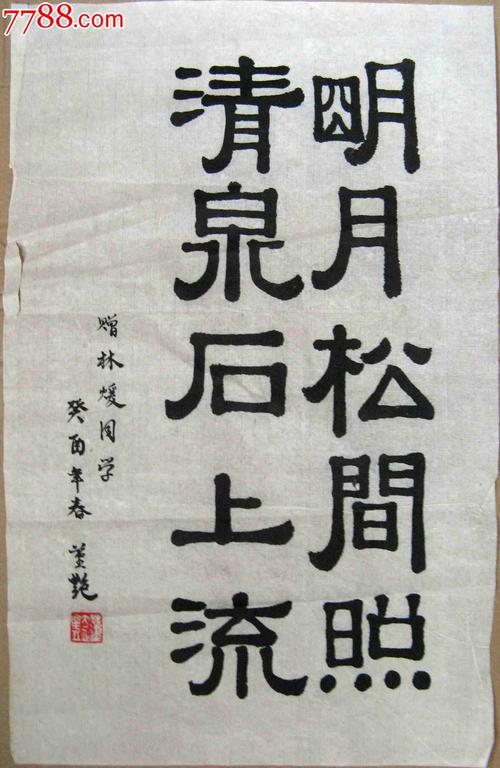 7788.com
明月松間照
清泉石上流
赠林煖同学
癸酉年春 董艳